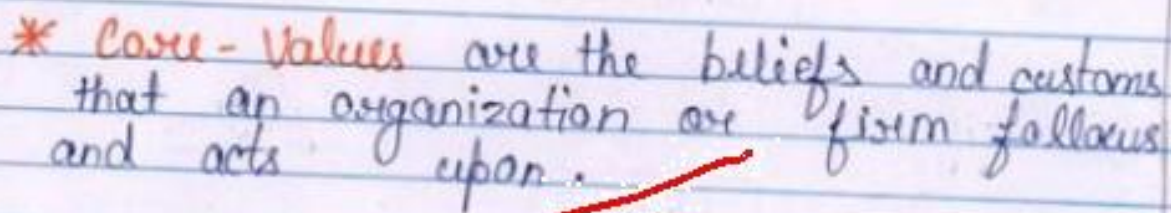 * Core-Values are the beliefs and customs
that an organization or firm follows
and acts upon.